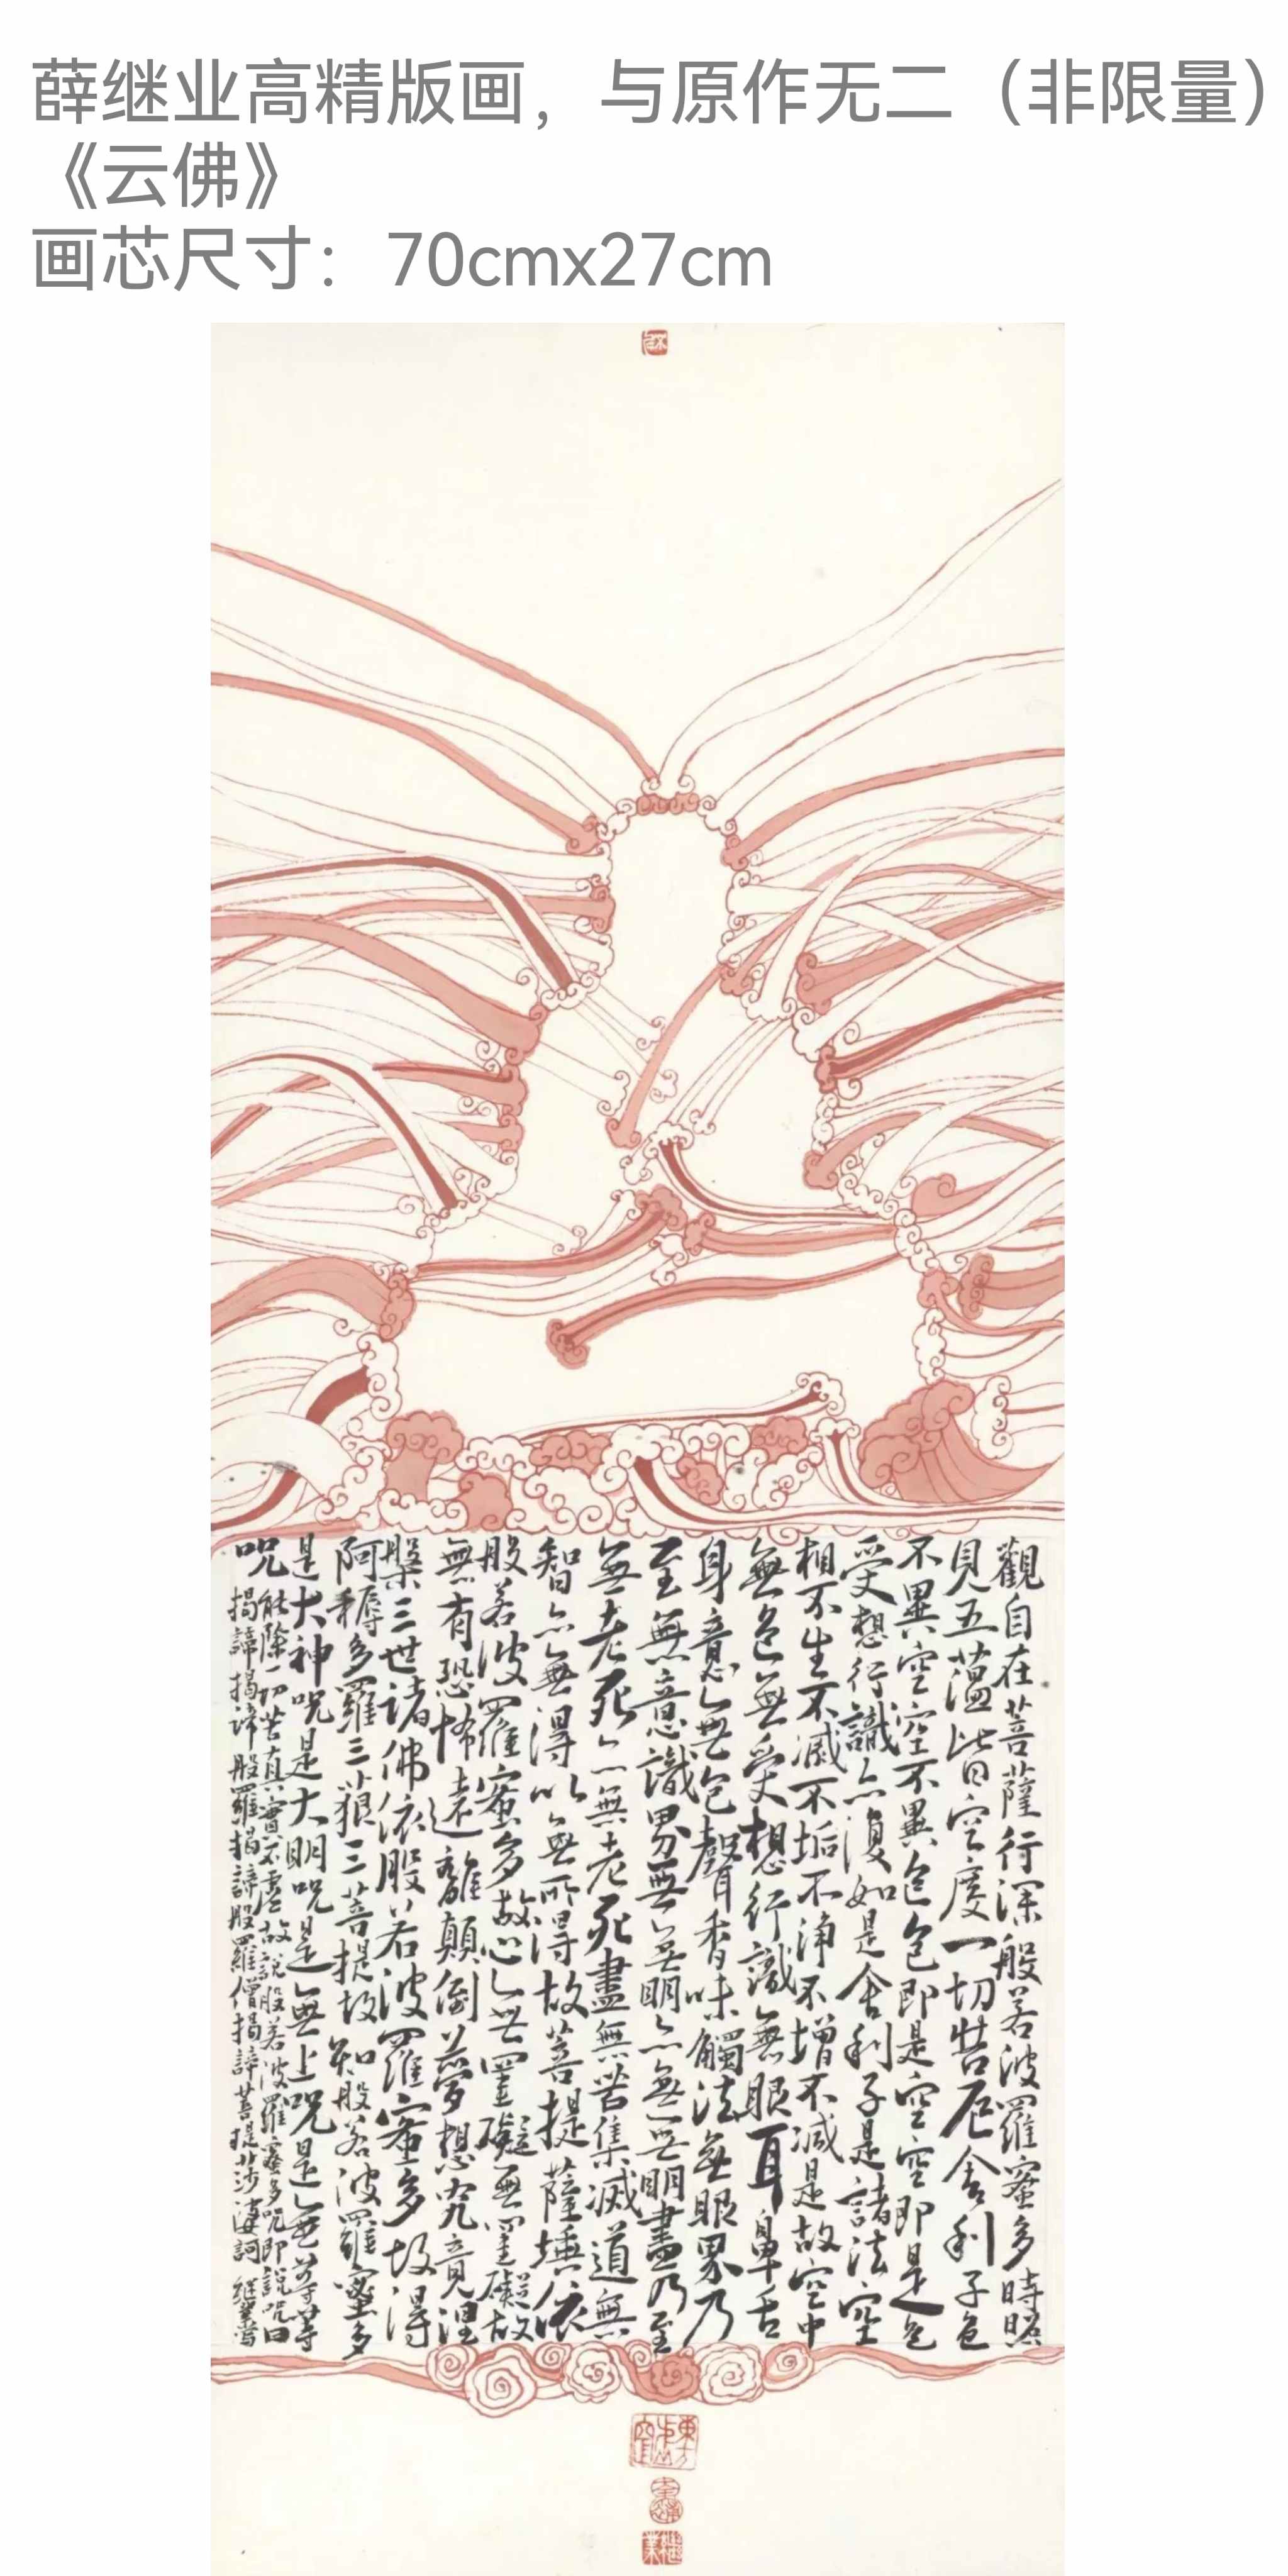 薛继业高精版画，与原作无二（非限量）
《云佛》
画芯尺寸：70cmx27cm
觀自在菩薩行深般若波羅蜜多時照
見五蘊皆空度一切苦厄舍利子色
不異空空不異色色即是空空即是色
受想行識亦復如是舍利子是諸法空
相不生不滅不垢不淨不增不減是故空中
無色無受想行識無眼耳鼻舌
身意無色聲香味觸法無眼界乃
至無意識界無無明亦無無明盡乃至
無老死亦無老死盡無苦集滅道無
智亦無得以無所得故菩提薩埵依
般若波羅蜜多故心無罣礙無罣礙故
無有恐怖遠離顛倒夢想究竟涅
槃三世諸佛依般若波羅蜜多故得
阿耨多羅三藐三菩提故知般若波羅蜜多
是大神呪是大明呪是無上呪是無等等
呪能除一切苦真實不虛故說般若波羅蜜多呪即說呪曰
揭諦揭諦般羅揭諦般羅僧揭諦菩提莎婆訶 繼業寫